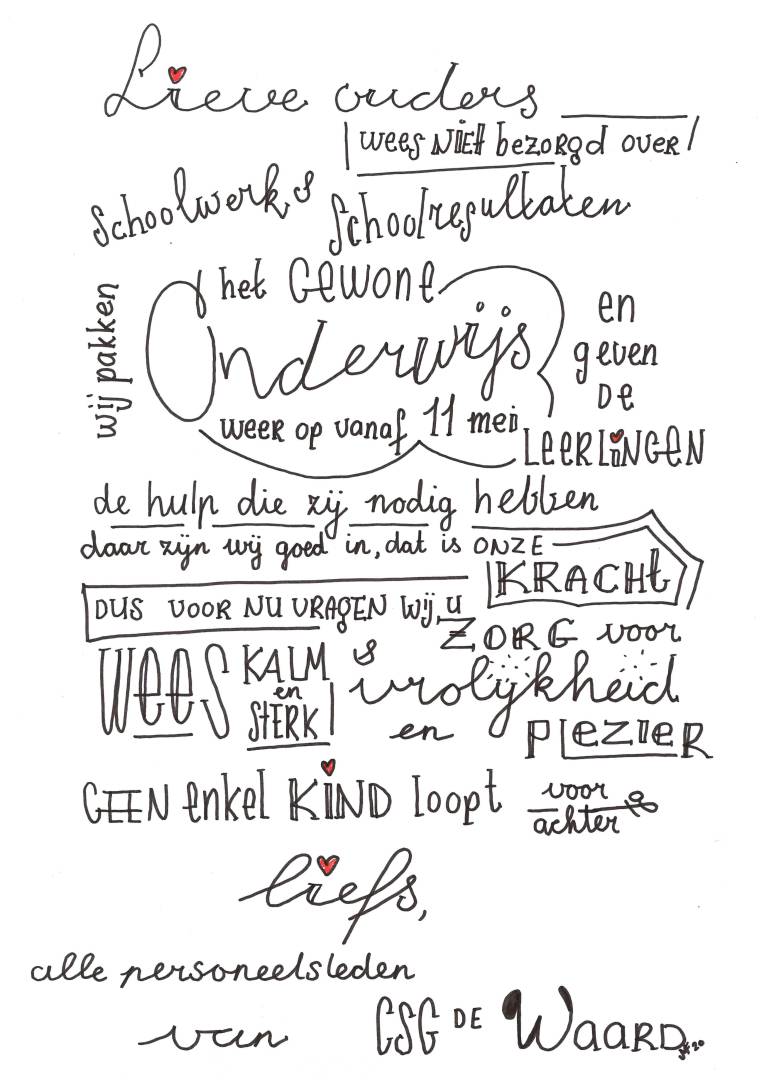 Lieve ouders
wees NIET bezorgd over
Schoolwerk &
Schoolresultaten
wij pakken
het GEWONE
Onderwijs
WEER op vanaf 11 mei
en
geven
DE
LEERLINGEN
de hulp die zij nodig hebben
daar zijn wij goed in, dat is ONZE
KRACHt
DUS VOOR NU VRAGEN wij, u
WEES KALM
en
StERK
&
ZORG voor
vrolijkheid
en PLEZIER
GEEN enkel KiND loopt voor
achter
liefs,
alle personeelsleden
van CSG DE WAARD